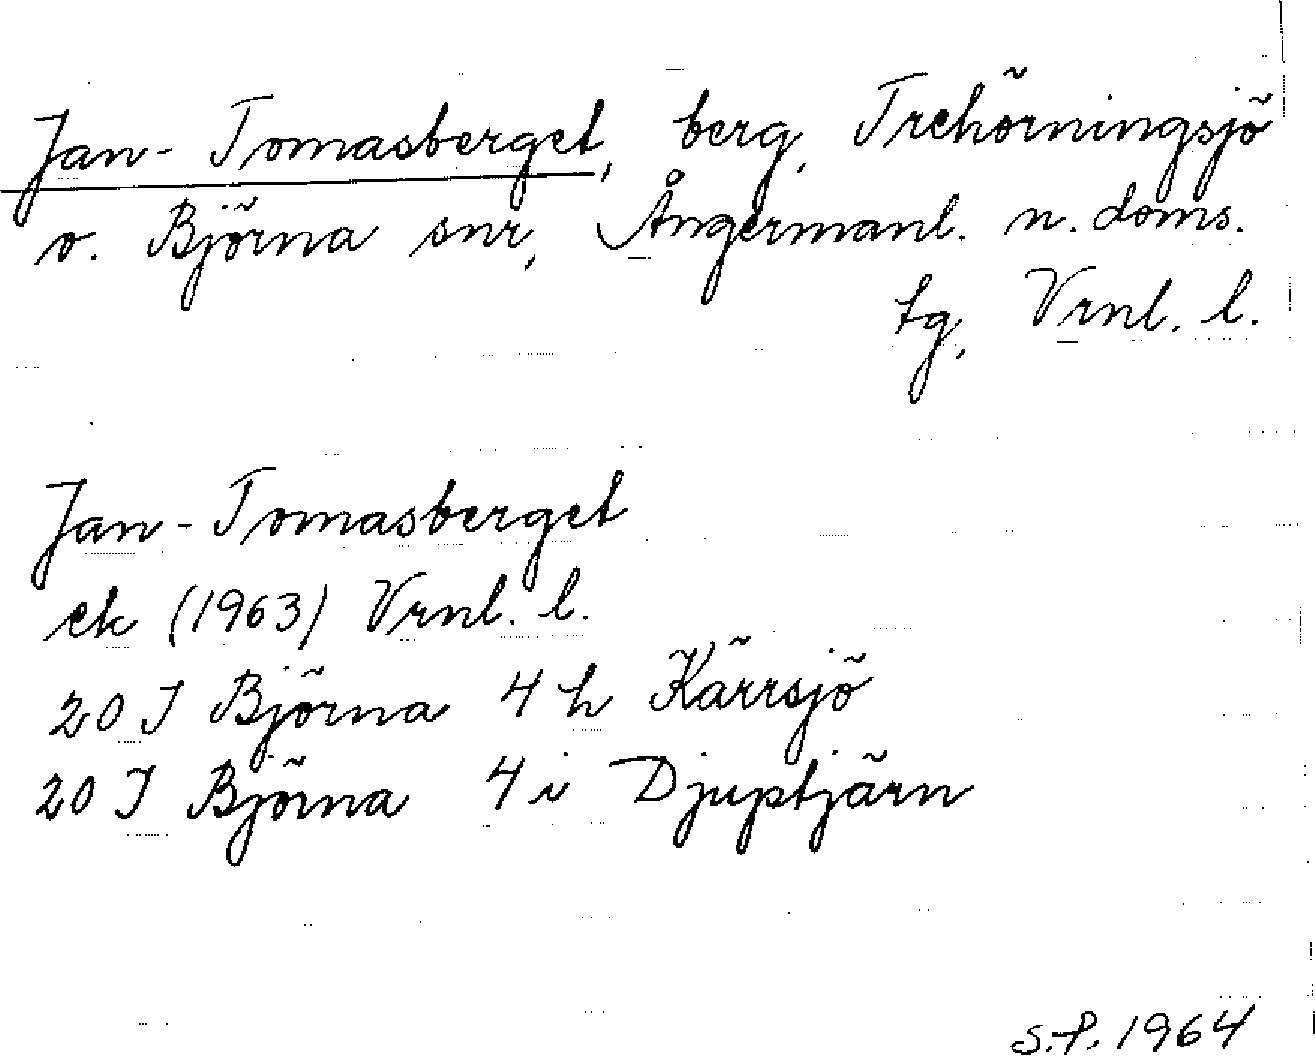 Jan-Tomasberget, berg, Trehörningsjö
o. Björna snr, Ångermanl. n. doms.
tg, Vrnl. l.
Jan-Tomasberget
ek (1963) Vrnl. l.
20 J Björna 4 h Kärrsjö
20 J Björna 4 i Djuptjärn
S.P. 1964